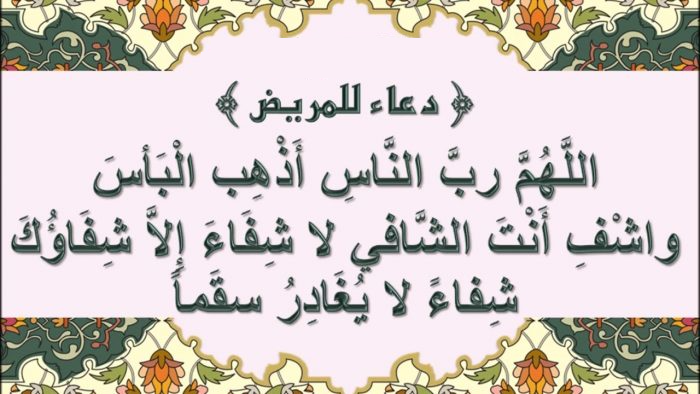 ﴿ دعاء للمريض ﴾
اللَّهُمَّ ربَّ النَّاسِ أَذْهِب الْبَأسَ
واشْفِ أَنْتَ الشَّافي لا شِفَاءَ إِلاَّ شِفَاؤُكَ
شِفاءً لا يُغَادِرُ سقَماً